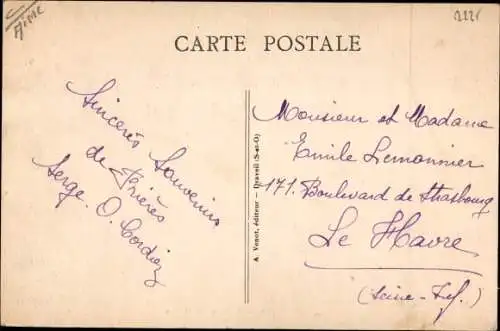 Aimé
2221
CARTE POSTALE
Sincères Souvenirs
de Prières
Serge. O. Cordier
A. Venot, éditeur - Draveil (S-et-O)
Monsieur et Madame
Emile Lemonnier
171. Boulevard de Strasbourg
Le Havre
(Seine-Inf.)